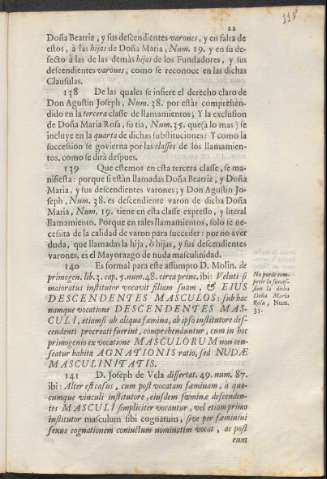 22
Doña Beatriz, y sus descendientes varones, y en falta de
estos, à las hijas de Doña Maria, Num. 19. y en su de-
fecto à las de las demàs hijas de los Fundadores, y sus
descendientes varones, como se reconoce en las dichas
Clausulas.
138 De las quales se infiere el derecho claro de
Don Agustin Joseph, Num. 38. por estàr comprehen-
dido en la tercera classe de llamamientos; Y la exclusion
de Doña Maria Rosa, su tia, Num. 35. que (à lo mas) se
incluye en la quarta de dichas substituciones: Y como la
succession se govierna por las classes de los llamamien-
tos, como se dirà despues.
139 Que estemos en esta tercera classe, se ma-
nifiesta: porque si estàn llamadas Doña Beatriz, y Doña
Maria, y sus descendientes varones; y Don Agustin Jo-
seph, Num. 38. es descendiente varon de dicha Doña
Maria, Num. 19. tiene en esta classe expresso, y literal
llamamiento. Porque en tales llamamientos, solo se ne-
cessita de la calidad de varon para succeder: por no aver
duda, que llamadas la hija, ò hijas, y sus descendientes
varones, es el Mayorazgo de nuda masculinidad.
140 Es formal para este assumpto D. Molin. de
primogen. lib. 3. cap. 5. num. 48. circa prim. ibi: Veluti si
maioratus institutor vocavit filium suum, & EIUS
DESCENDENTES MASCULOS: sub hac
namque vocatione DESCENDENTES MAS-
CULI, etiamsi ab aliqua fæmina, ab ipso institutore des-
cendenti procreati fuerint, comprehenduntur, cum in hoc
primogenio ex vocatione MASCULORUM non cen-
seatur habita AGNATIONIS ratio, sed NUDÆ
MASCULINITATIS.
No puede romperle la succession la dicha Doña Maria Rosa, Num. 35.
141 D. Joseph de Vela dissertat. 49. num. 87.
ibi: Alter est casus, cum post vocatam fæminam, a qui-
cumque vinculi institutore, eiusdem fæminæ descenden-
tes MASCULI simpliciter vocantur, vel etiam primo
institutor masculum sibi cognatum, sive per fæminini
sexus cognationem coniunctum nominatim vocat, ac post
eum